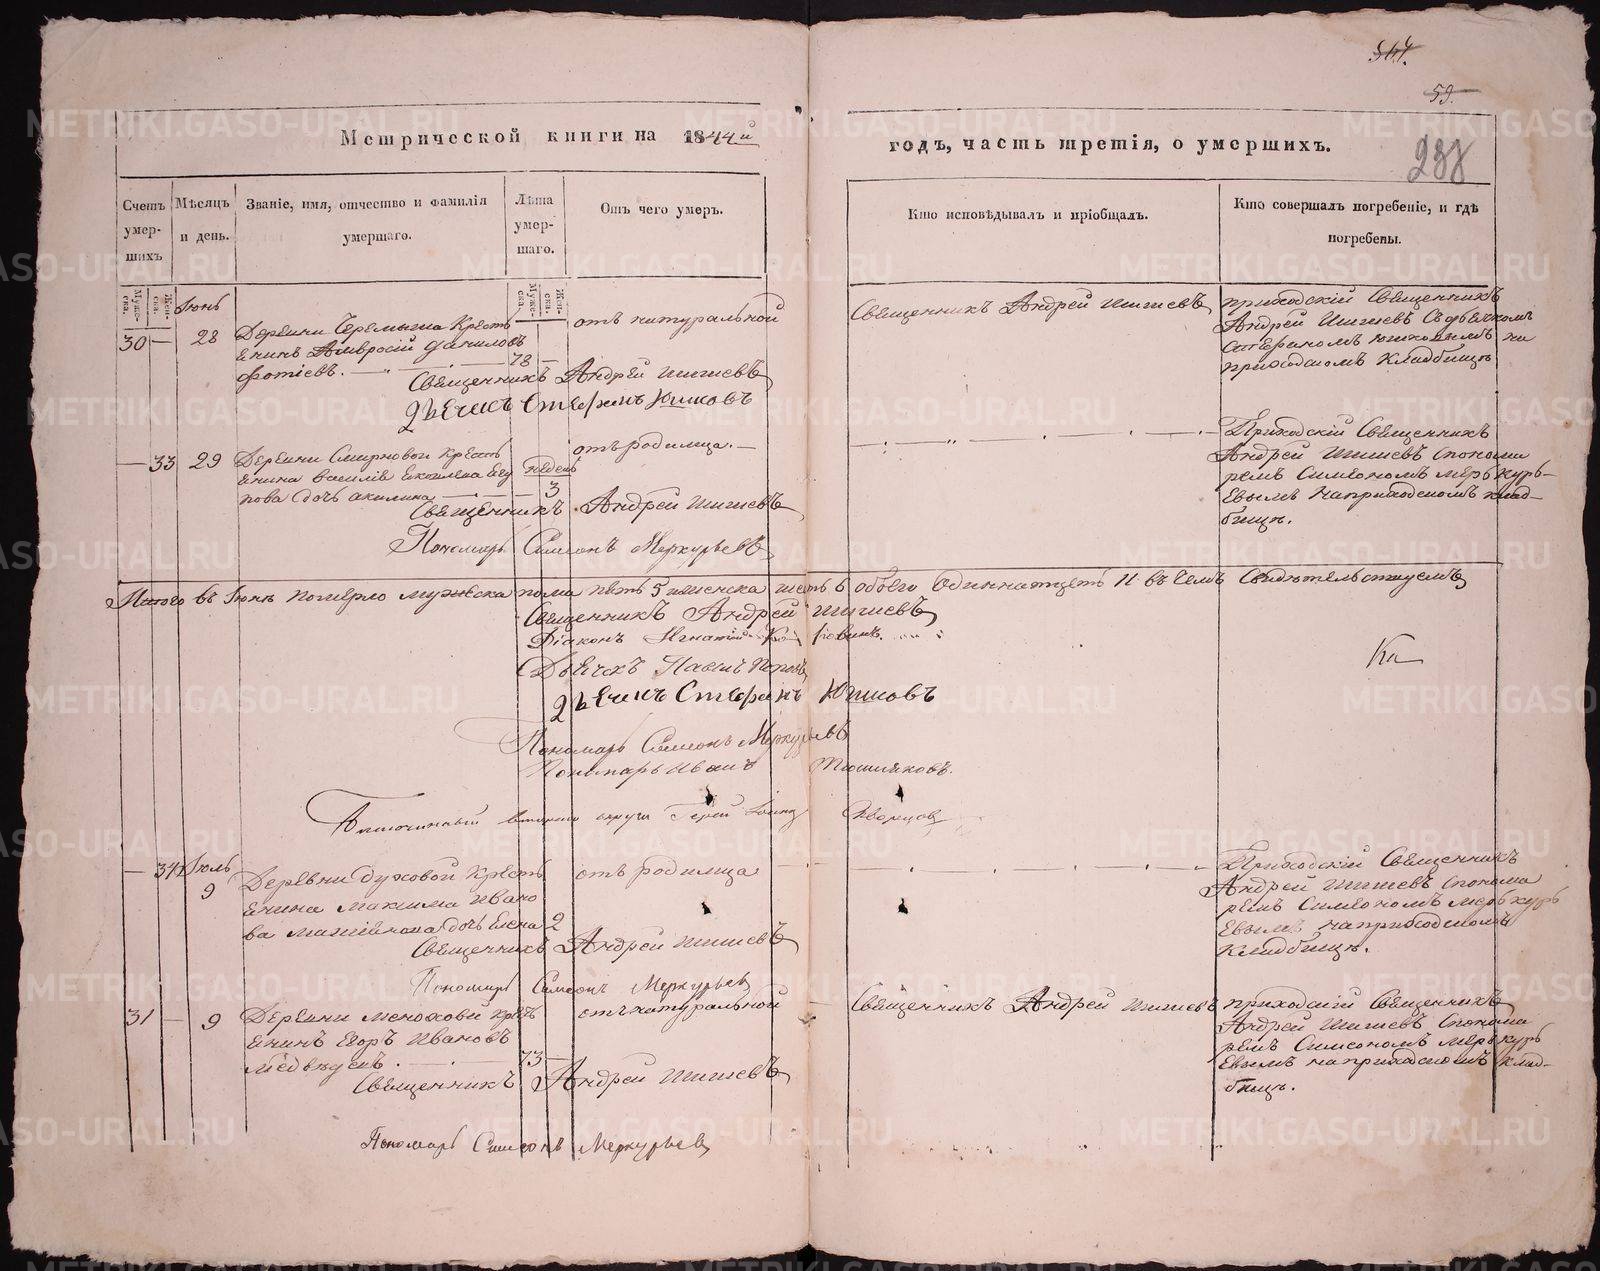 564.
59.
238
Метрической книги на 1844й
годъ, часть третія, о умершихъ.
Счетъ умер-шихъ
Мужеска.
Женска.
Мѣсяцъ и день.
Званіе, имя, отчество и фамилія умершаго.
Лѣта умер-шаго.
Мужеска.
Женска.
Отъ чего умеръ.
Кто исповѣдывалъ и пріобщалъ.
Кто совершалъ погребеніе, и гдѣ погребены.
Іюнь
30 — 28 Деревни Черемыша Кресть
янинъ Амвросій Даниловъ
Фотіевъ. 78 —
отъ натуральной
Священникъ Андрей Шишевъ
приходскій Священникъ
Андрей Шишевъ Съдьячкомъ
Стефаномъ Юшковымъ на
приходскомъ Кладбищѣ
Священникъ Андрей Шишевъ
Дьячекъ Стефанъ Юшковъ
— 33 29 Деревни Смирновой Кресть
янина Василія
дочь Акилина
недель
3
отъ родимца. —
Приходскій Священникъ
Андрей Шишевъ спонома
ремъ Симеономъ Мерькурь
евымъ наприходскомъ клад-
бищѣ.
Священникъ Андрей Шишевъ
Пономарь Симеонъ Меркурьевъ
Итого въ Іюнѣ померло мужеска пола пять 5 иженска шесть 6 обоего одиннатцеть 11 въ чемъ Свидѣтельствуемъ
Священникъ Андрей Шишевъ
Діаконъ Игнатій
Дьячекъ Павелъ Поповъ
Дьячекъ Стефанъ Юшковъ
Пономарь Симеонъ Меркурьевъ
Пономарь Иванъ
Ка
Благочинный втораго округа Іерей
— 34 Іюль
9 Деревни Духовой Кресть
янина Максима Ивано
ва дочь Елена 2
отъ родимца
Приходскій Священникъ
Андрей Шишевъ спонома
ремъ Симеономъ Мерькурь
евымъ наприходскомъ
Кладбищѣ.
Священникъ Андрей Шишевъ
Пономарь Симеонъ Меркурьевъ
31 — 9 Деревни
янинъ Егоръ Ивановъ
Медведевъ 73 —
отъ натуральной
Священникъ Андрей Шишевъ
приходскій Священникъ
Андрей Шишевъ спонома
ремъ Симеономъ Мерькурь
евымъ наприходскомъ клад-
бищѣ.
Священникъ Андрей Шишевъ
Пономарь Симеонъ Меркурьевъ
METRIKI.GASO-URAL.RU